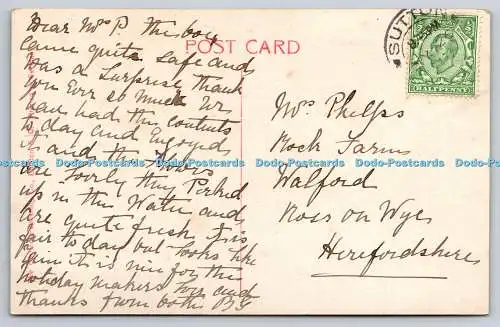 Dear Mrs P. The box
came quite safe and
was a Surprise Thank
you Ever so much We
have had the contents
to day and Enjoyed
it and the flowers
are lovely they Perked
up in the Water and
are quite fresh it is
fair to day but looks like
rain it is nice for the
holiday makers
thanks from both
POST CARD
SUTTON
HALFPENNY
Mrs Phelps
Rock Farm
Walford
Ross on Wye
Herefordshire
Dodo-Postcards Dodo-Postcards Dodo-Postcards Dodo-Postcards Dodo-Postcards